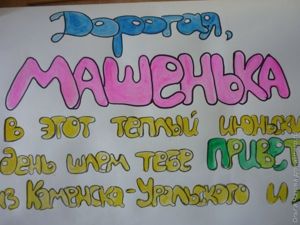 Дорогая,
МАШЕНЬКА
В ЭТОТ ТЕПЛЫЙ ИЮНЬСКИ
ДЕНЬ ШЛЕМ ТЕБЕ ПРИВЕТ
ИЗ КАМЕНСКА-УРАЛЬСКОГО И